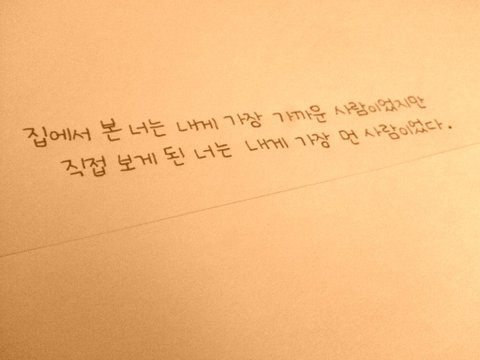 집에서 본 너는 내게 가장 가까운 사람이었지만
직접 보게 된 너는 내게 가장 먼 사람이었다.